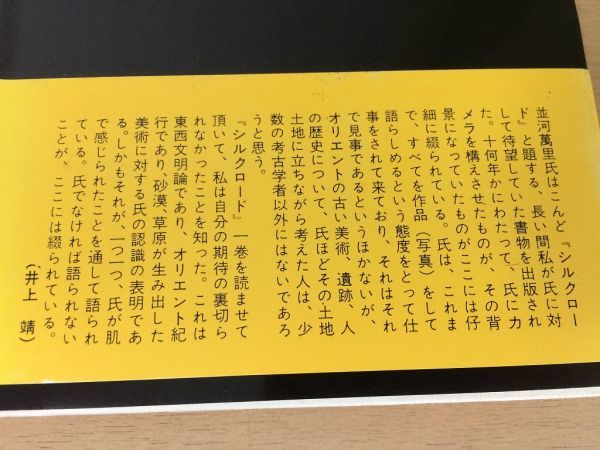 並河萬里氏はこんど『シルクロー
ド』と題する、長い間私が氏に対
して待望していた書物を出版され
た。十何年かにわたって、氏にカ
メラを構えさせたものが、その背
景になっていたものがここには仔
細に綴られている。氏は、これま
で、すべてを作品（写真）をして
語らしめるという態度をとって仕
事をされて来ており、それはそれ
で見事であるというほかないが、
オリエントの古い美術、遺跡、人
の歴史について、氏ほどその土地
土地に立ちながら考えた人は、少
数の考古学者以外にはないであろ
うと思う。
『シルクロード』一巻を読ませて
頂いて、私は自分の期待の裏切ら
れなかったことを知った。これは
東西文明論であり、オリエント紀
行であり、砂漠、草原が生み出した
美術に対する氏の認識の表明であ
る。しかもそれが、一つ一つ、氏が肌
で感じられたことを通して語られ
ている。氏でなければ語られない
ことが、ここには綴られている。
（井上　靖）